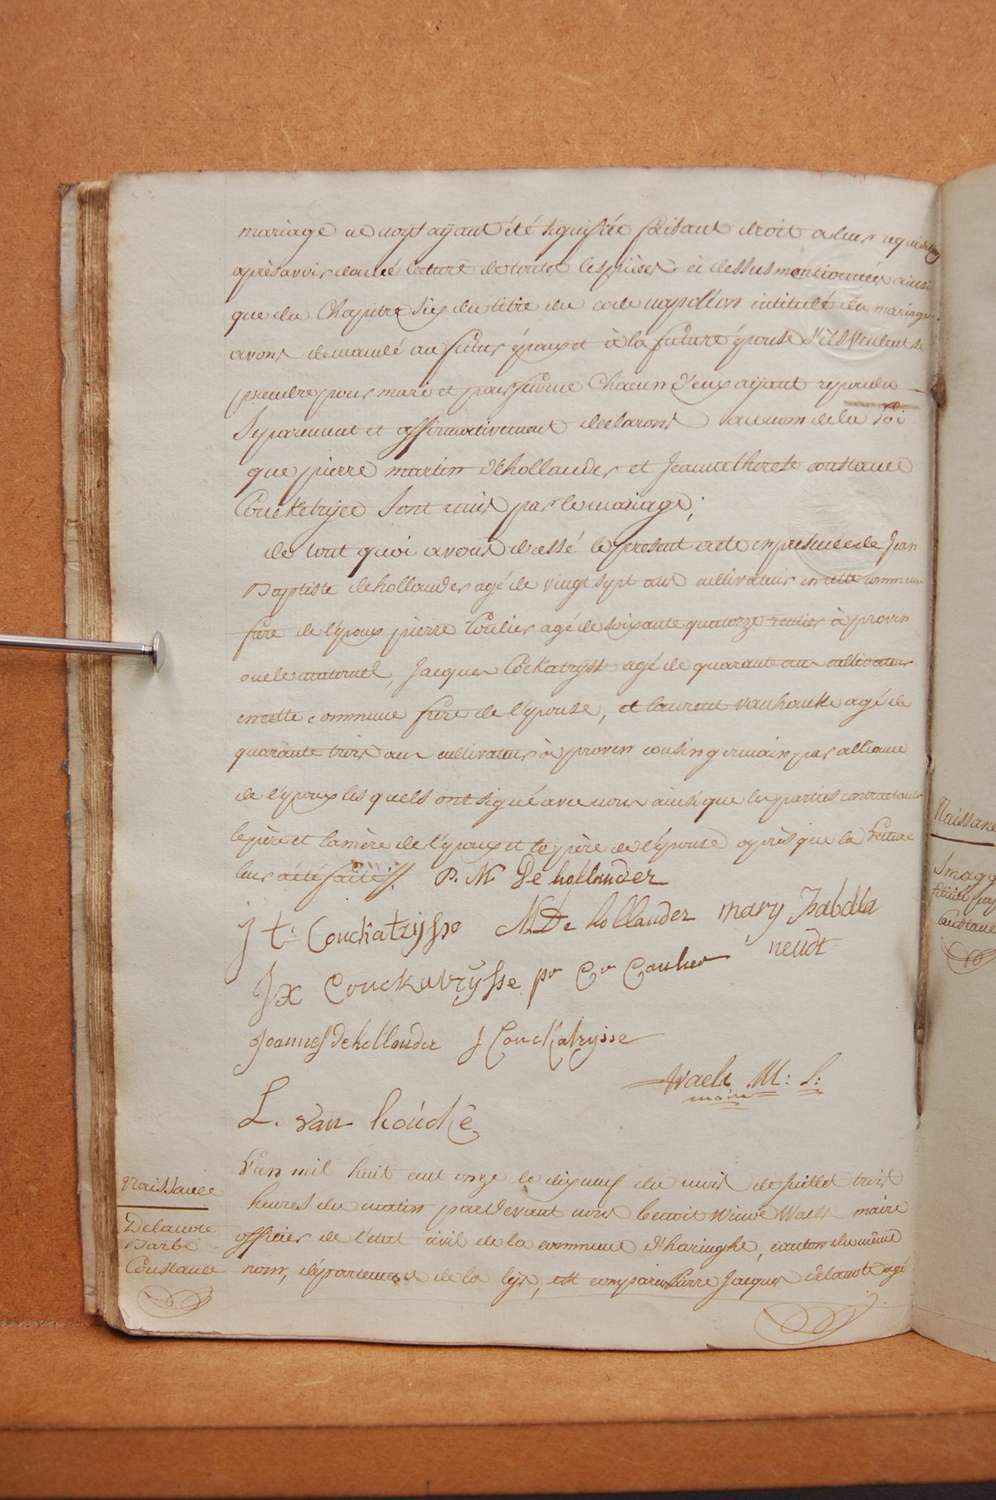 mariage ne nous ayant été signifiée faisant droit a leur requisition
après avoir donné lecture de toutes les pièces ci dessus mentionnées ainsi
que du Chapitre Six du titre du code napoléon intitulé du mariage
avons demandé au futur époux et à la future épouse s'ils veulent se
prendre pour mari et pour femme Chacun d'eux ayant repondu
Separement et affirmativement declarons au nom de la Loi
que pierre martin dehollander et Jeanne therese constance
Couckelrijse Sont unis par le mariage;
de tout quoi avons dressé le présent acte en présence de Jean
Baptiste dehollander agé de vingt sept ans cultivateur en cette commune
frère de l'époux pierre Coulier agé de soixante quatorze rentier à proven
oncle maternel, Jacques Cockatrysse agé de quarante an cultivateur
en cette commune frère de l'épouse, et laurent vanhoucke agé de
quarante trois ans cultivateur à proven cousin germain par alliance
de l'époux les quels ont signé avec nous ainsi que les parties contractantes
le père et la mère de l'époux et le père de l'épouse après que la lecture
leur a été faite. P. M De hollander
j t: Couckatrysse M. De hollander mary Isabella
neudt
Jx Couckatrysse pr Cr Caulier
Joannes de hollander J Couckatrysse
Waels M: L:
maire
L. van houcke
Naissance
Delanote
Barbe
Constance
L'an mil huit cent onze le dixneuf du mois de Juillet trois
heures du matin pardevant nous benoit Waels maire
officier de l'état civil de la commune d'haringhe, canton du même
nom, département de la lys, est comparu Pierre Jacques delanote agé
Naissance